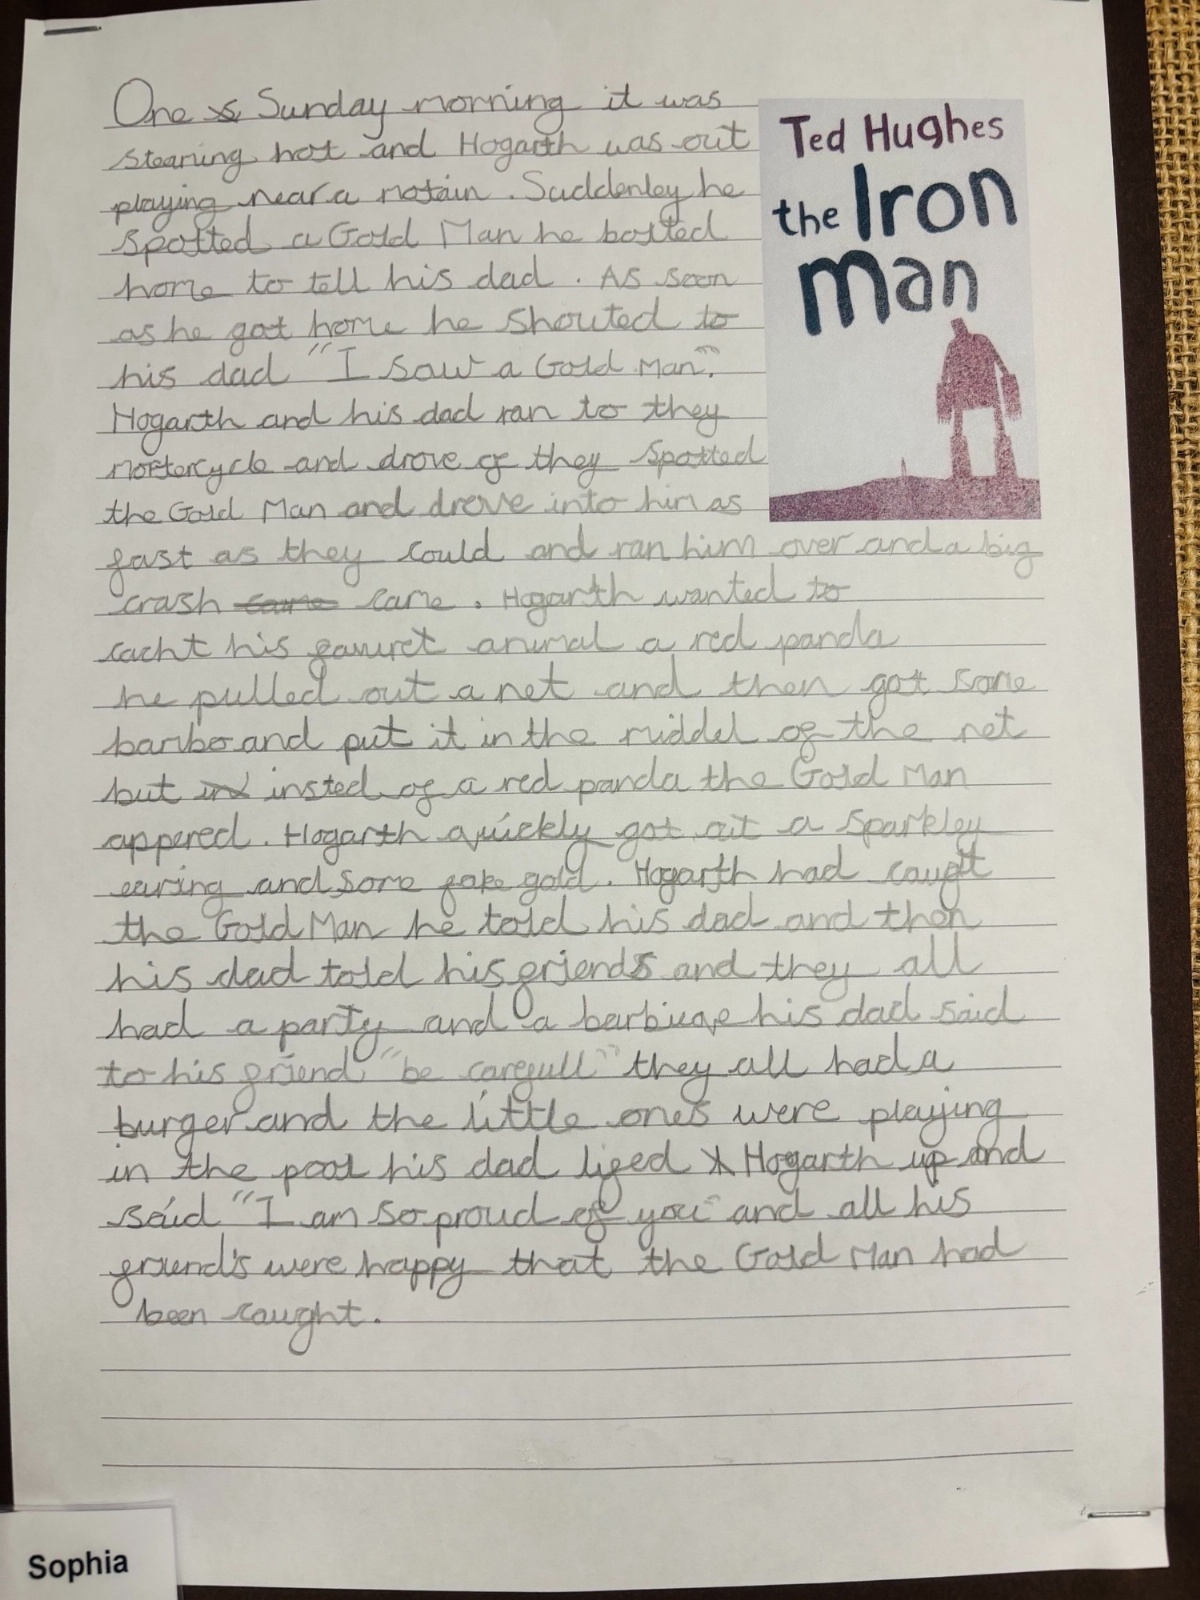 One Sunday morning it was
stearning hot and Hogarth was out
playing near a motain. Suddenley he
spotted a Gold Man he bolted
home to tell his dad. As soon
as he got home he shouted to
his dad "I saw a Gold Man".
Hogarth and his dad ran to they
mortercycle and drove of they spotted
the Gold Man and drove into him as
fast as they could and ran him over and a big
crash came came. Hogarth wanted to
cacht his favuret animal a red panda
he pulled out a net and then got some
barbo and put it in the middel of the net
but in insted of a red panda the Gold Man
appered. Hogarth quickly got out a sparkley
earing and some fake gold. Hogarth had caught
the Gold Man he told his dad and then
his dad told his friends and they all
had a party and a barbique his dad said
to his friend "be carefull" they all had a
burger and the little ones were playing
in the pool his dad lifed Hogarth up and
said "I am so proud of you" and all his
friend's were happy that the Gold Man had
been caught.
Ted Hughes
the Iron
Man
Sophia